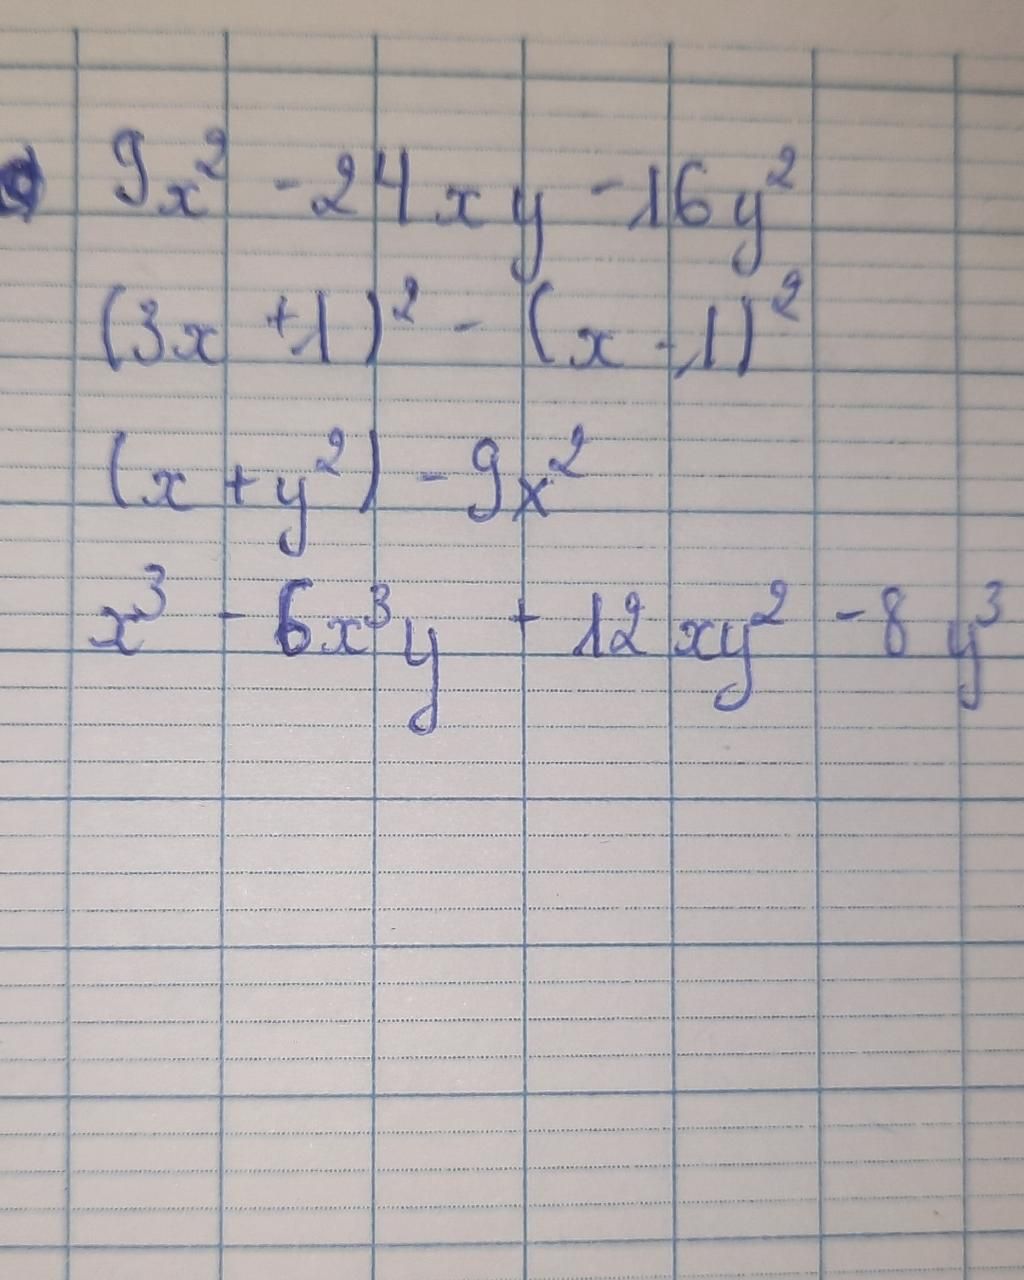 9x² - 24xy - 16y²
(3x + 1)² - (x - 1)²
(x + y²) - 9x²
x³ - 6x³y + 12xy² - 8y³